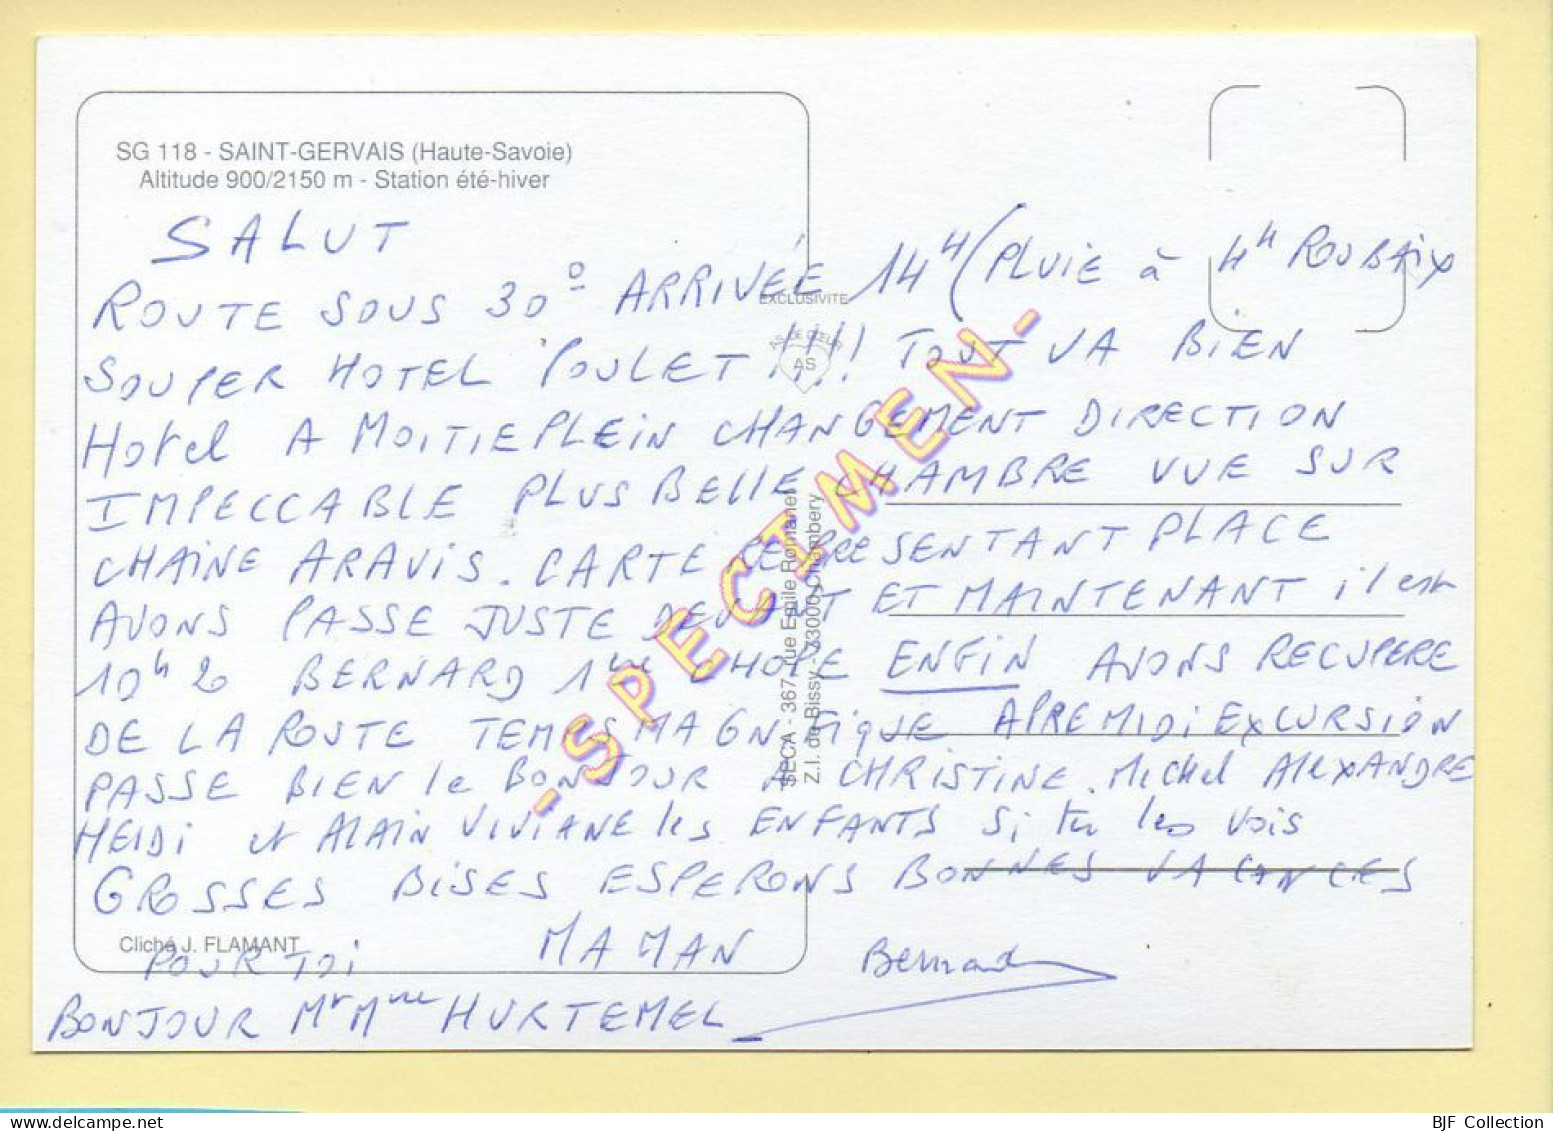 SG 118 - SAINT-GERVAIS (Haute-Savoie)
Altitude 900/2150 m - Station été-hiver
SALUT
ROUTE SOUS 30° ARRIVÉE 14H (PLUIE à 4H ROUBAIX
SOUPER HOTEL POULET !!!! TOUT VA BIEN
Hotel A MOITIE PLEIN CHANGEMENT DIRECTION
IMPECCABLE PLUS BELLE CHAMBRE VUE SUR
CHAINE ARAVIS. CARTE REPRESENTANT PLACE
AVONS PASSE JUSTE DEVANT ET MAINTENANT il est
10h 20 BERNARD 1ere CHOPE ENFIN AVONS RECUPERE
DE LA ROUTE TEMPS MAGNIFIQUE APREMIDI EXCURSION
PASSE BIEN le BONJOUR A CHRISTINE. MICHEL ALEXANDRE
HEIDI et ALAIN VIVIANE les ENFANTS Si tu les vois
GROSSES BISES ESPERONS BONNES VACANCES
POUR TOI MAMAN Bernard
BONJOUR Mr Mme HURTEMEL
Cliché J. FLAMANT
EXCLUSIVITE
AS DE CŒUR
AS
SECA - 367, rue Emile Romanet
Z.I. de Bissy - 73000 Chambery
- SPECIMEN -
BJF Collection